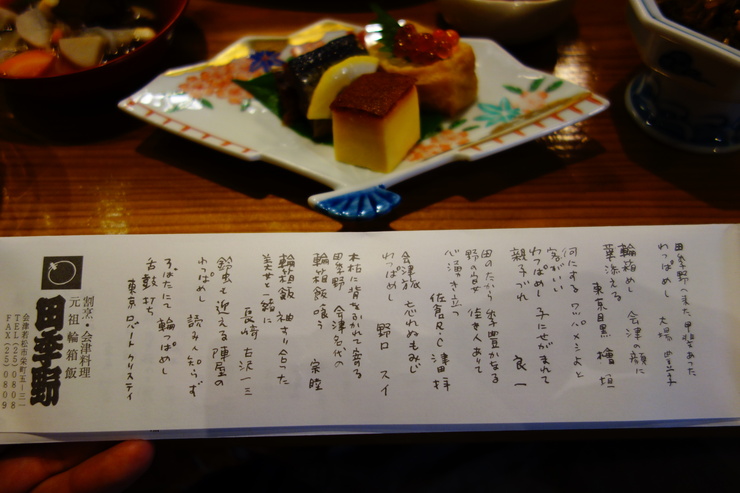 田季野へ来た甲斐あった
わっぱめし 大場
輪箱めし 会津の顔に
菜添える
東京目黒 檜垣
何にする ワッパメシよと
わっぱめし 子にせがまれて
親子づれ 良一
田のたから 季豊かなる
野の母 佳き人ありて
心湧き立つ
佐倉R.C 津田
会津旅 忘れぬもみじ
わっぱめし 野口 スイ
田季野 会津名代の
輪箱飯喰う 宗睦
輪箱飯 袖すり合った
美女と一緒に
長崎 古沢一三
鈴虫も迎える 陣屋の
わっぱめし 読み人知らず
ろばたにて 輪っぱめし
舌鼓打ち
東京 ロバート クリスティ
割烹・会津料理
元祖輪箱飯
田季野
会津若松市栄町五-三一
TEL(25)0808
FAX(25)0809